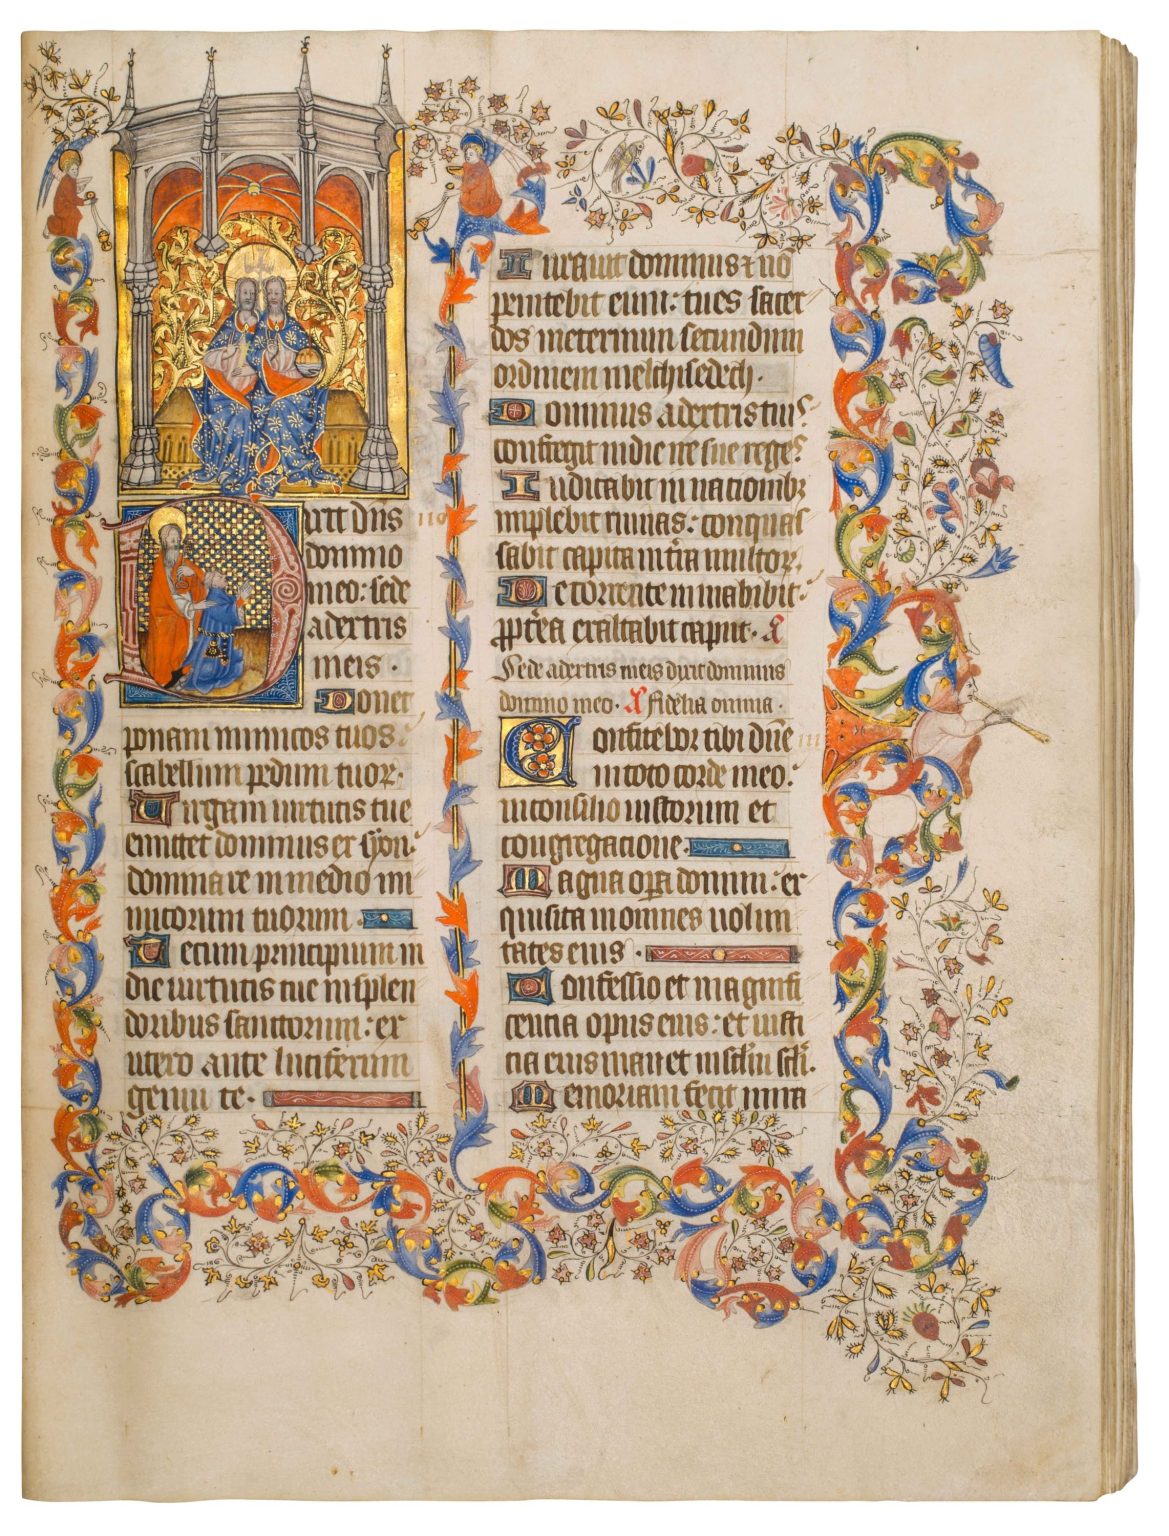 Dixit dns
domino
meo: sede
adextris
meis.
Donec
ponam inimicos tuos:
scabellum pedum tuoꝝ.
Uirgam uirtutis tue
emittet dominus ex syon:
dominare in medio ini
micorum tuorum.
Tecum principium in
die uirtutis tue in splen
doribus sanctorum: ex
utero ante luciferum
genui te.
Iurauit dominus ⁊ nō
penitebit eum: tu es sacer
dos ineternum secundum
ordinem melchisedech.
Dominus adextris tuis:
confregit in die ire sue reges
Iudicabit in nacionibꝫ
implebit ruinas: conquas
sabit capita in tr̄a multoꝝ.
De torrente in uia bibit:
ꝓpt̄ea exaltabit caput. A
Sede adextris meis dixit dominus
domino meo. A Fidelia omnia.
Confitebor tibi dn̄e
in toto corde meo:
in consilio iustorum et
congregacione.
Magna oꝑa domini: ex
quisita in omnes uolun
tates eius.
Confessio et magnifi
cencia opus eius: et iusti
cia eius manet in sclm̄ scl̄i.
Memoriam fecit mira